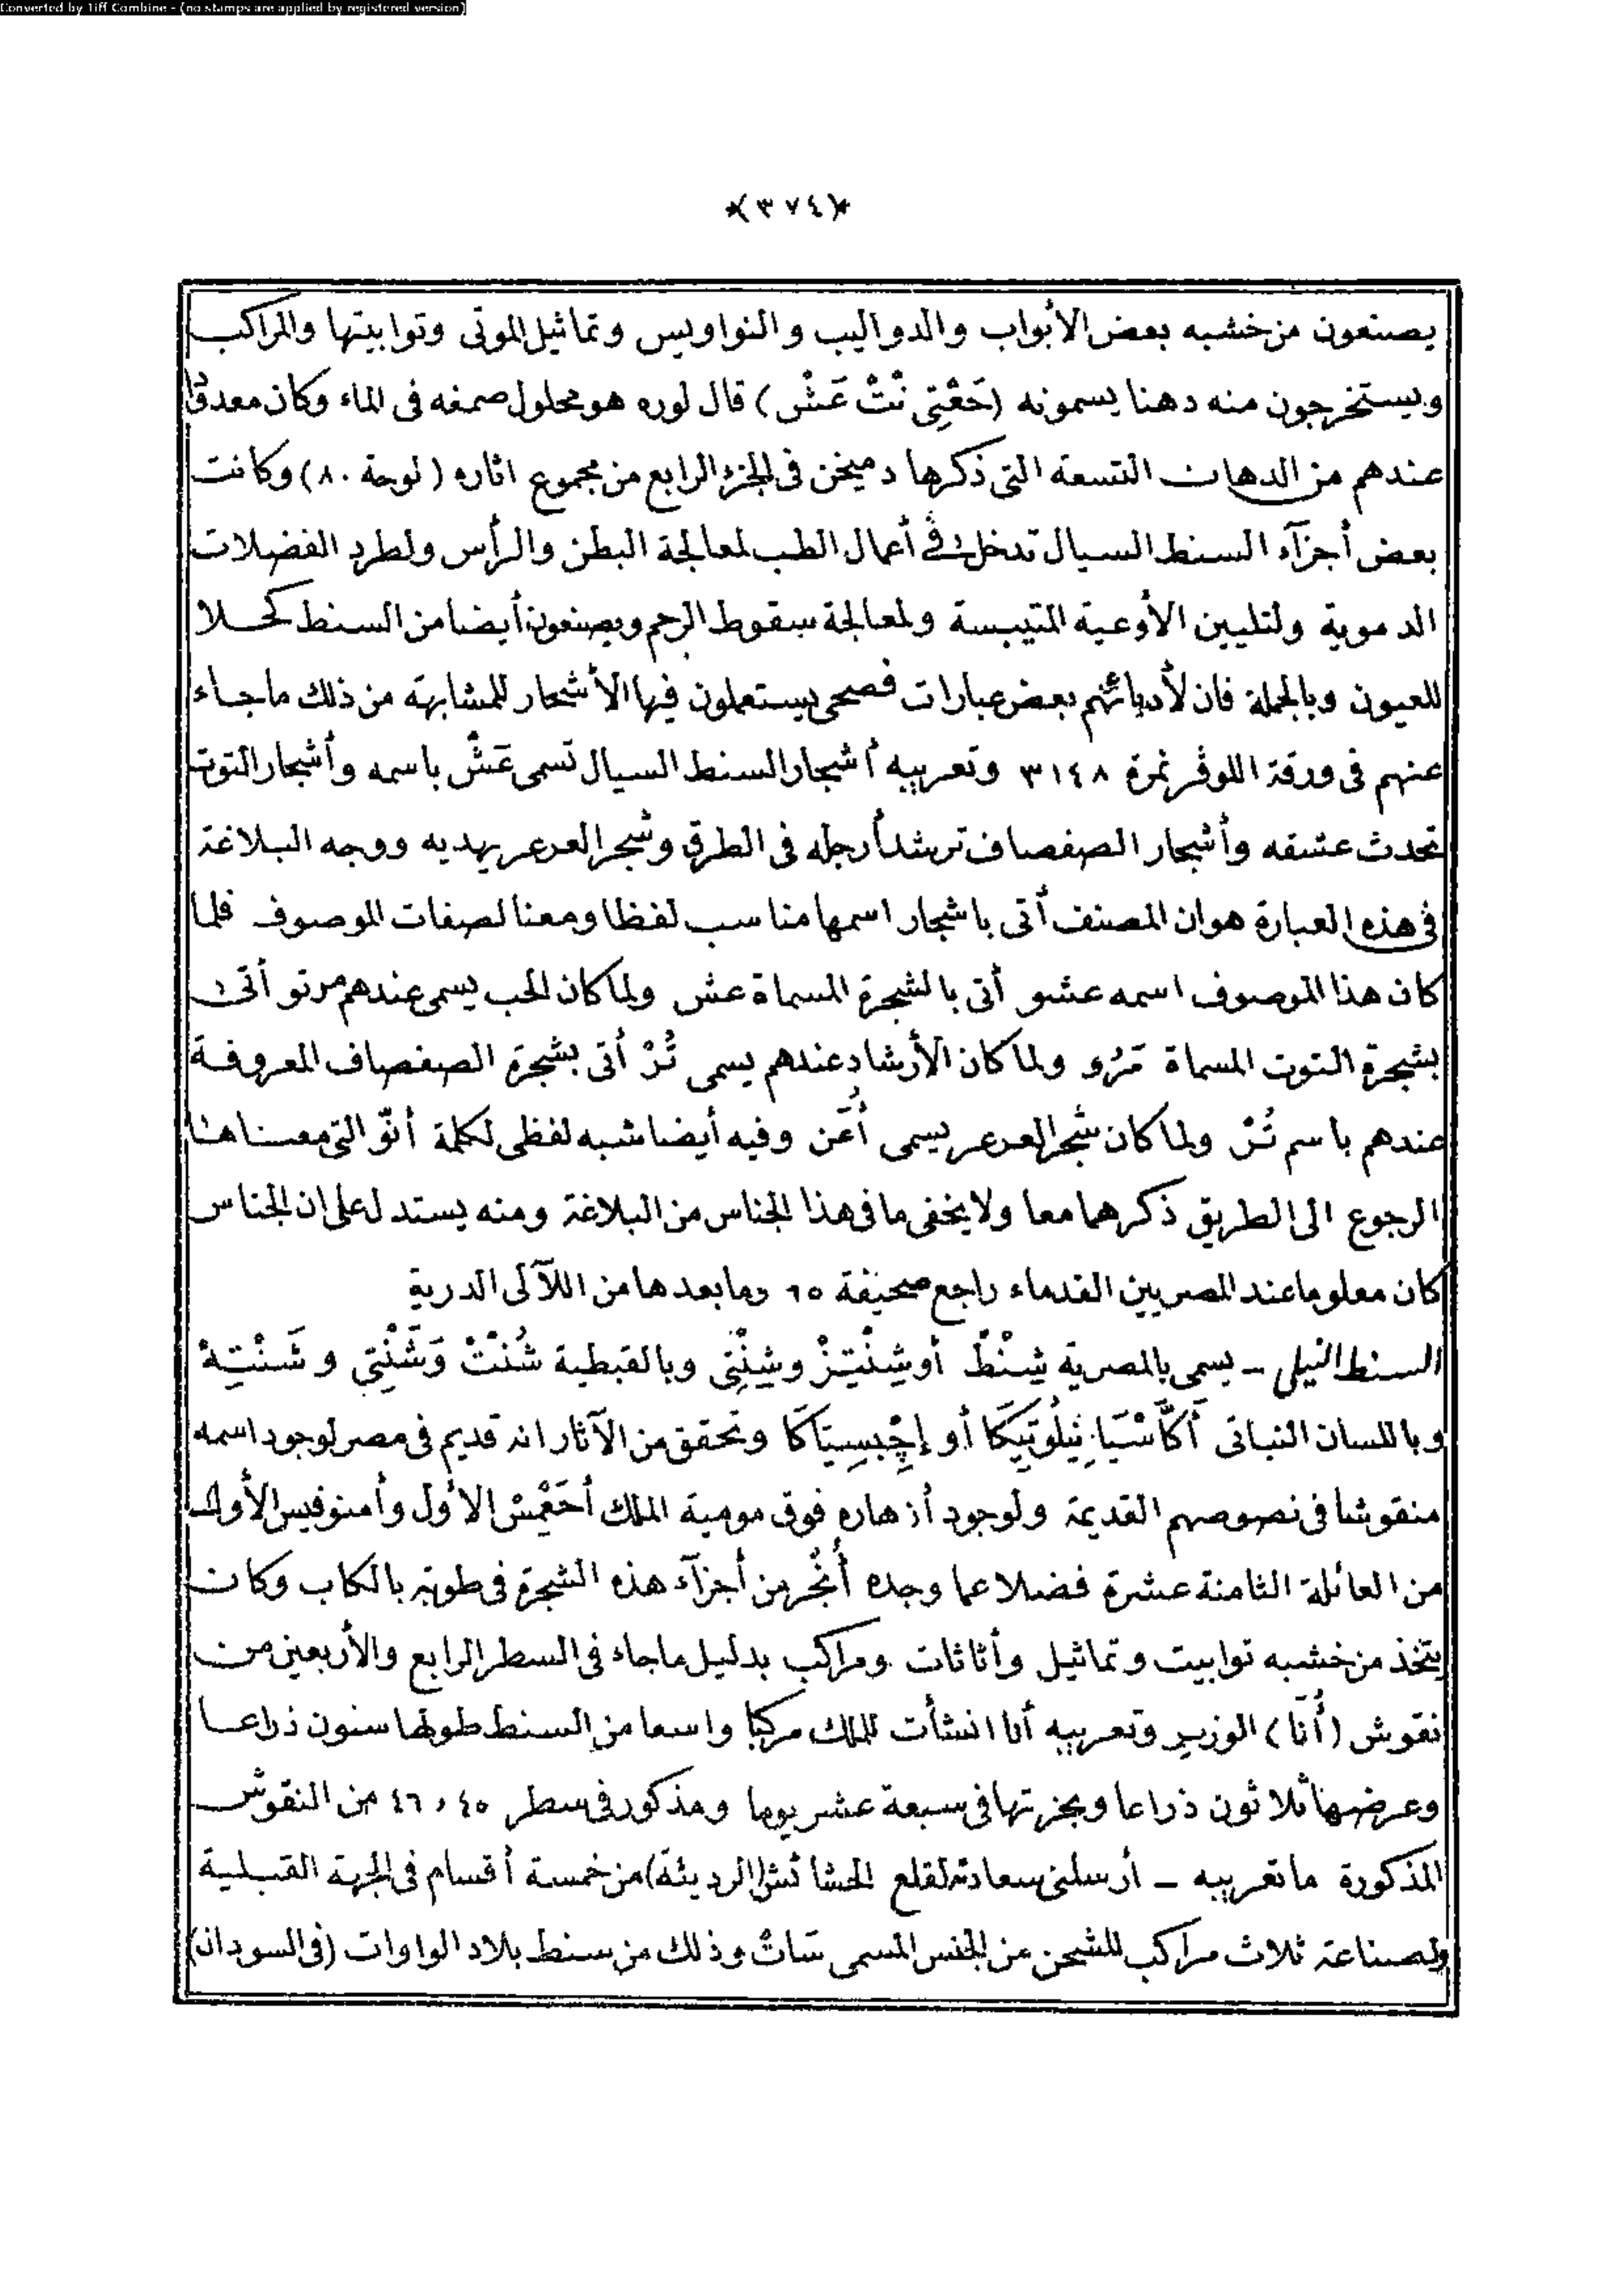 Converted by Tiff Combine - (no stamps are applied by registered version)
*(٣٧٤)*
يصنعون من خشبه بعض الأبواب والدواليب والنواويس وتماثيل الموتى وتوابيتها والمراكب
ويستخرجون منه دهنا يسمونه (حَعْتِى نْتْ عَشْ) قال لوره هو محلول صمغه فى الماء وكان معدودا
عندهم من الدهانات التسعة التى ذكرها دميخن فى الجزء الرابع من مجموع اثاره (لوحة ٨٠) وكانت
بعض أجزآء السنط السيال تدخل فى أعمال الطب لمعالجة البطن والرأس ولطرد الفضلات
الدموية ولتليين الأوعية المتيبسة ولمعالجة سقوط الرحم ويصنعون أيضا من السنط كحلا
للعيون وبالجملة فان لأدبائهم بعض عبارات فصحى يستعملون فيها الأشجار للمشابهة من ذلك ما جاء
عنهم فى ورقة اللوفر نمرة ٣١٤٨ وتعريبه أشجار السنط السيال تسمى عَشْ باسمه وأشجار التوت
تحدث عشقه وأشجار الصفصاف ترشد أرجله فى الطرق وشجر العرعر يهديه ووجه البلاغة
فى هذه العبارة هو ان المصنف أتى باشجار اسمها مناسب لفظا ومعنا لصفات الموصوف فلما
كان هذا الموصوف اسمه عشو أتى بالشجرة المسماة عش ولما كان الحب يسمى عندهم مرتو أتى
بشجرة التوت المسماة مَرُو ولما كان الأرشاد عندهم يسمى تُرْ أتى بشجرة الصفصاف المعروفة
عندهم باسم تُرْ ولما كان شجر العرعر يسمى أُعَن وفيه أيضا شبه لفظى لكلمة أنّو التى معناها
الرجوع الى الطريق ذكرهما معا ولا يخفى ما فى هذا الجناس من البلاغة ومنه يستدل على ان الجناس
كان معلوما عند المصريين القدماء راجع صحيفة ٦٥ وما بعدها من اللآلى الدرية
السنط النيلى - يسمى بالمصرية شِنْطْ أو شِنْتِزْ وشِنْتِى وبالقبطية شُنْتْ وَشَنْتِى وشَنْتِهْ
وباللسان النباتى أَكَّاسْيَا نِيلُوتِيكَا أو إجِبْسِيَاكَا وتحقق من الآثار انه قديم فى مصر لوجود اسمه
منقوشا فى نصوصهم القديمة ولوجود أزهاره فوق مومية الملك أحعْمِسْ الأول وأمنوفيس الأول
من العائلة الثامنة عشرة فضلا عما وجده أُنْجُر من أجزآء هذه الشجرة فى طوبة بالكاب وكان
يتخذ من خشبه توابيت وتماثيل وأثاثات ومراكب بدليل ما جاء فى السطر الرابع والأربعين من
نقوش (أُنَا) الوزير وتعريبه أنا انشأت للملك مركبا واسعا من السنط طولها ستون ذراعا
وعرضها ثلاثون ذراعا ونجزتها فى سبعة عشر يوما ومذكور فى سطر ٤٥ و ٤٦ من النقوش
المذكورة ما تعريبه - أرسلنى سعادته لقلع الحشائش (الرديئة) من خمسة أقسام فى الجهة القبلية
ولصناعة ثلاث مراكب للشحن من الجنس المسمى سَاتْ وذلك من سنط بلاد الواوات (فى السودان)